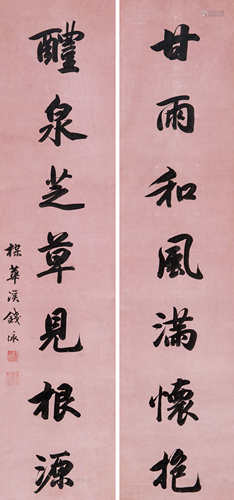 甘雨和風滿懷抱
醴泉芝草見根源
梅華溪錢泳